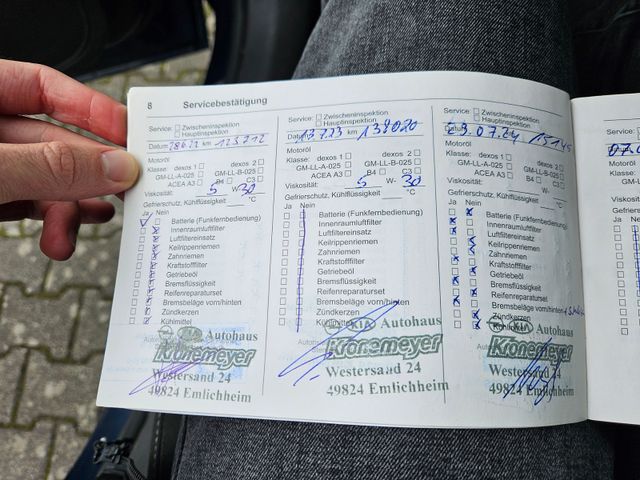 8 Servicebestätigung
Service: Zwischeninspektion
Hauptinspektion
Datum km 123212
Motoröl
Klasse: dexos 1 dexos 2
GM-LL-A-025 GM-LL-B-025
ACEA A3 B4 C3
Viskosität: 5 W- 30
Gefrierschutz, Kühlflüssigkeit °C
Ja Nein
Batterie (Funkfernbedienung)
Innenraumluftfilter
Luftfiltereinsatz
Keilrippenriemen
Zahnriemen
Kraftstofffilter
Getriebeöl
Bremsflüssigkeit
Reifenreparaturset
Bremsbeläge vorn/hinten
Zündkerzen
Kühlmittel
KIA Autohaus
Kronemeyer
Westersand 24
49824 Emlichheim
Service: Zwischeninspektion
Hauptinspektion
Datum 13.7.23 km 138020
Motoröl
Klasse: dexos 1 dexos 2
GM-LL-A-025 GM-LL-B-025
ACEA A3 B4 C3
Viskosität: 5 W- 30
Gefrierschutz, Kühlflüssigkeit °C
Ja Nein
Batterie (Funkfernbedienung)
Innenraumluftfilter
Luftfiltereinsatz
Keilrippenriemen
Zahnriemen
Kraftstofffilter
Getriebeöl
Bremsflüssigkeit
Reifenreparaturset
Bremsbeläge vorn/hinten
Zündkerzen
KIA Autohaus
Kronemeyer
Westersand 24
49824 Emlichheim
Service: Zwischeninspektion
Hauptinspektion
Datum
Motoröl
Klasse: dexos 1 dexos 2
GM-LL-A-025 GM-LL-B-025
ACEA A3 B4 C3
Viskosität: W-
Gefrierschutz, Kühlflüssigkeit °C
Ja Nein
Batterie (Funkfernbedienung)
Innenraumluftfilter
Luftfiltereinsatz
Keilrippenriemen
Zahnriemen
Kraftstofffilter
Getriebeöl
Bremsflüssigkeit
Reifenreparaturset
Bremsbeläge vorn/hinten
Zündkerzen
KIA Autohaus
Kronemeyer
Westersand 24
49824 Emlichheim
Service:
Motoröl
Klasse:
Viskosität:
Gefriersch
Ja Nein